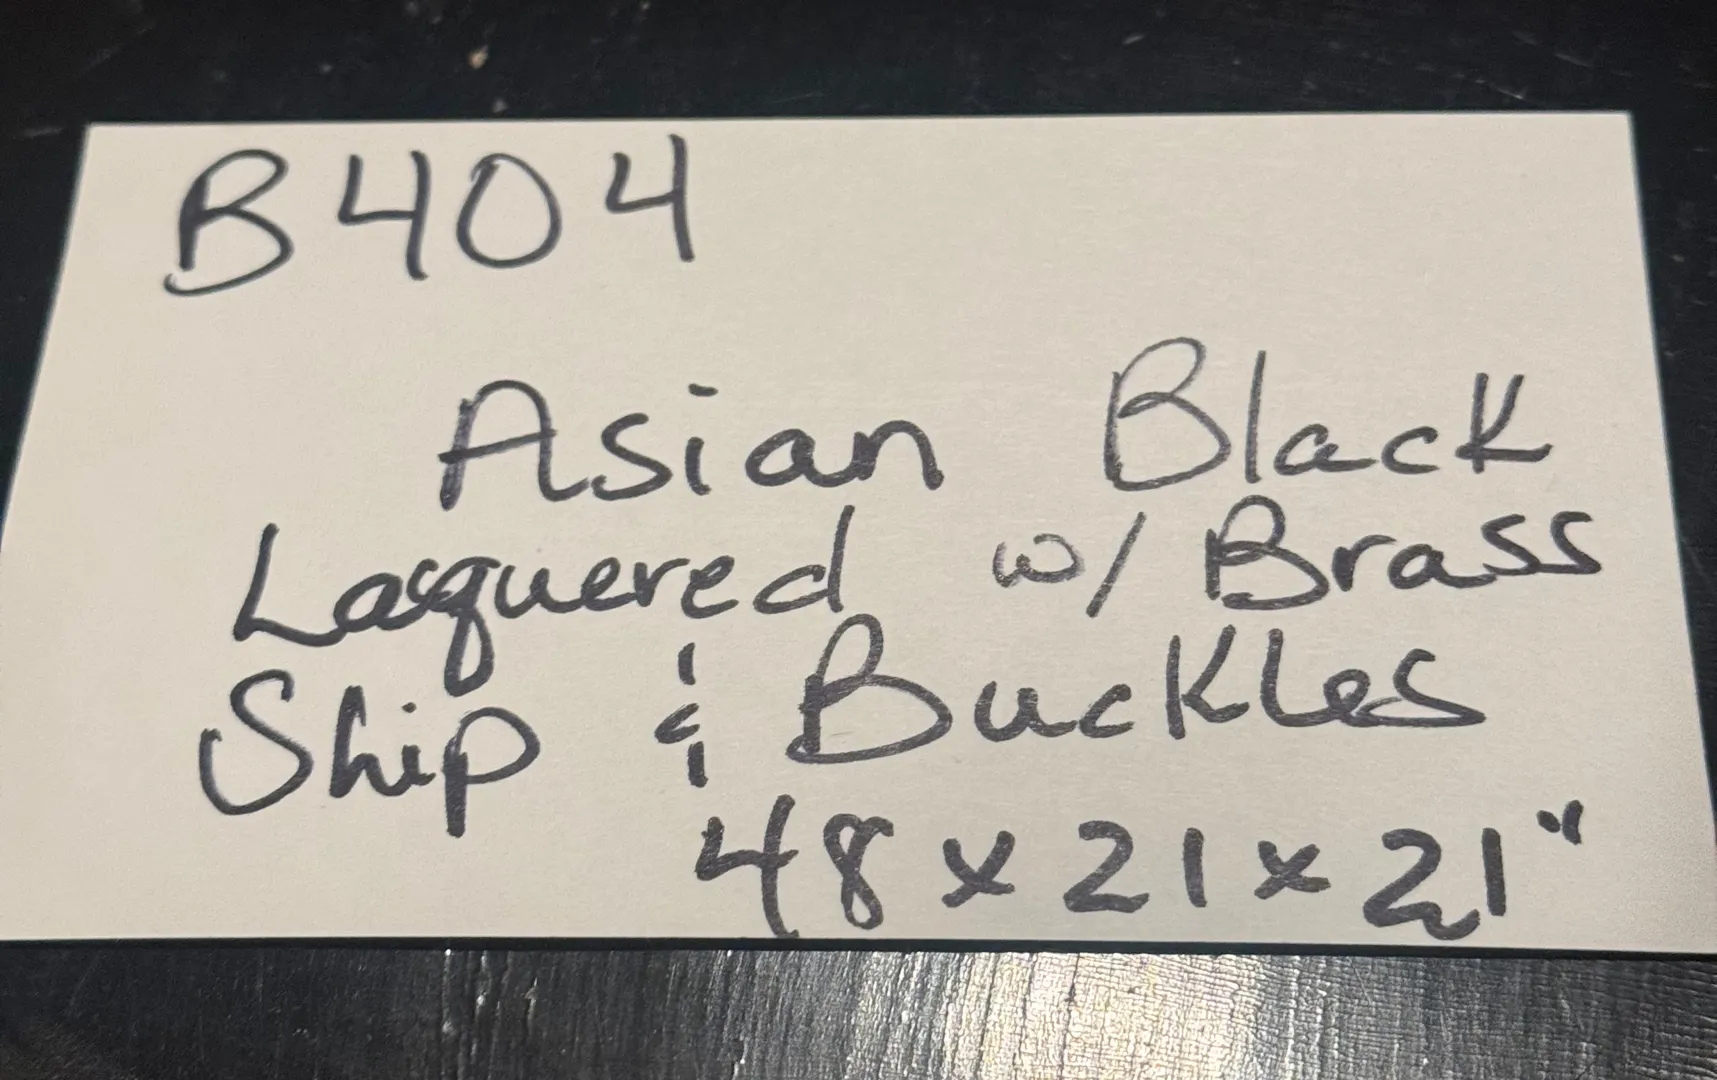 B404
Asian Black
Lacquered w/ Brass
Ship & Buckles
48 x 21 x 21"